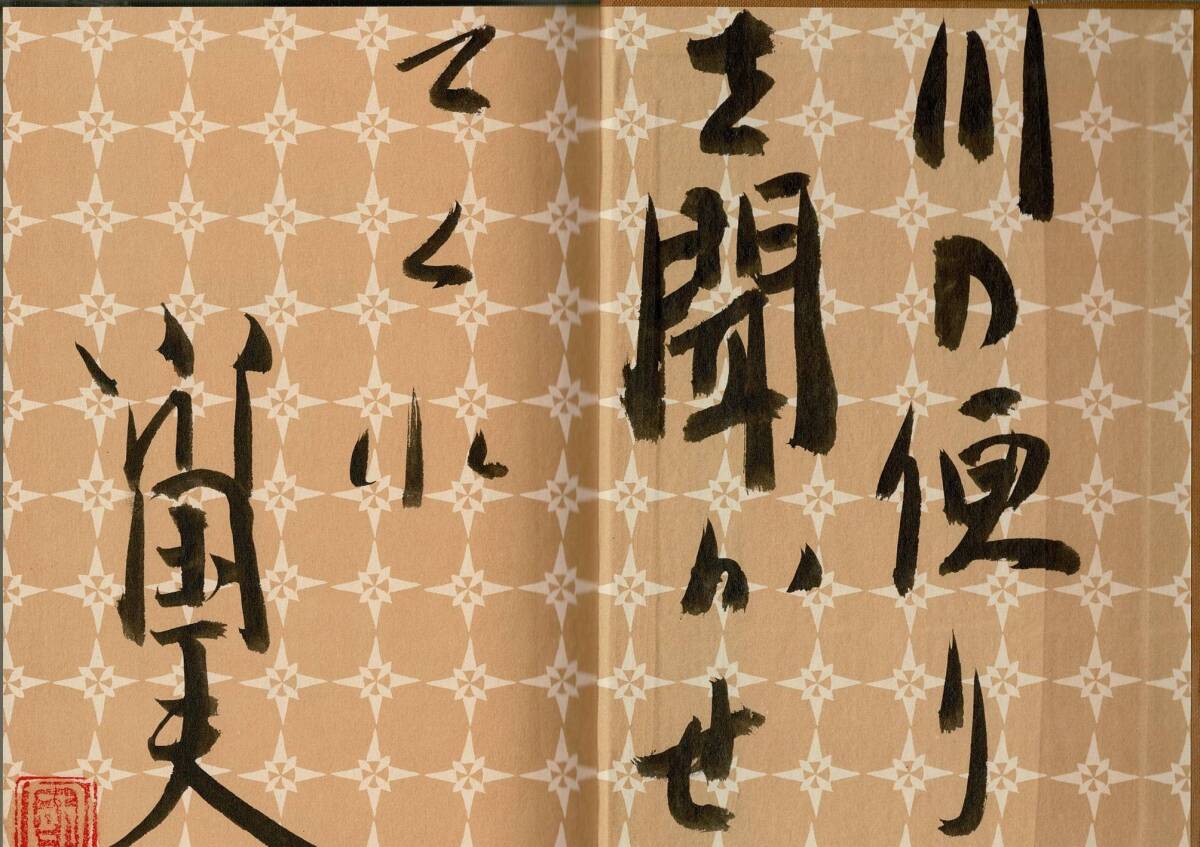 川の便り
を聞かせ
てくれ
小川国夫